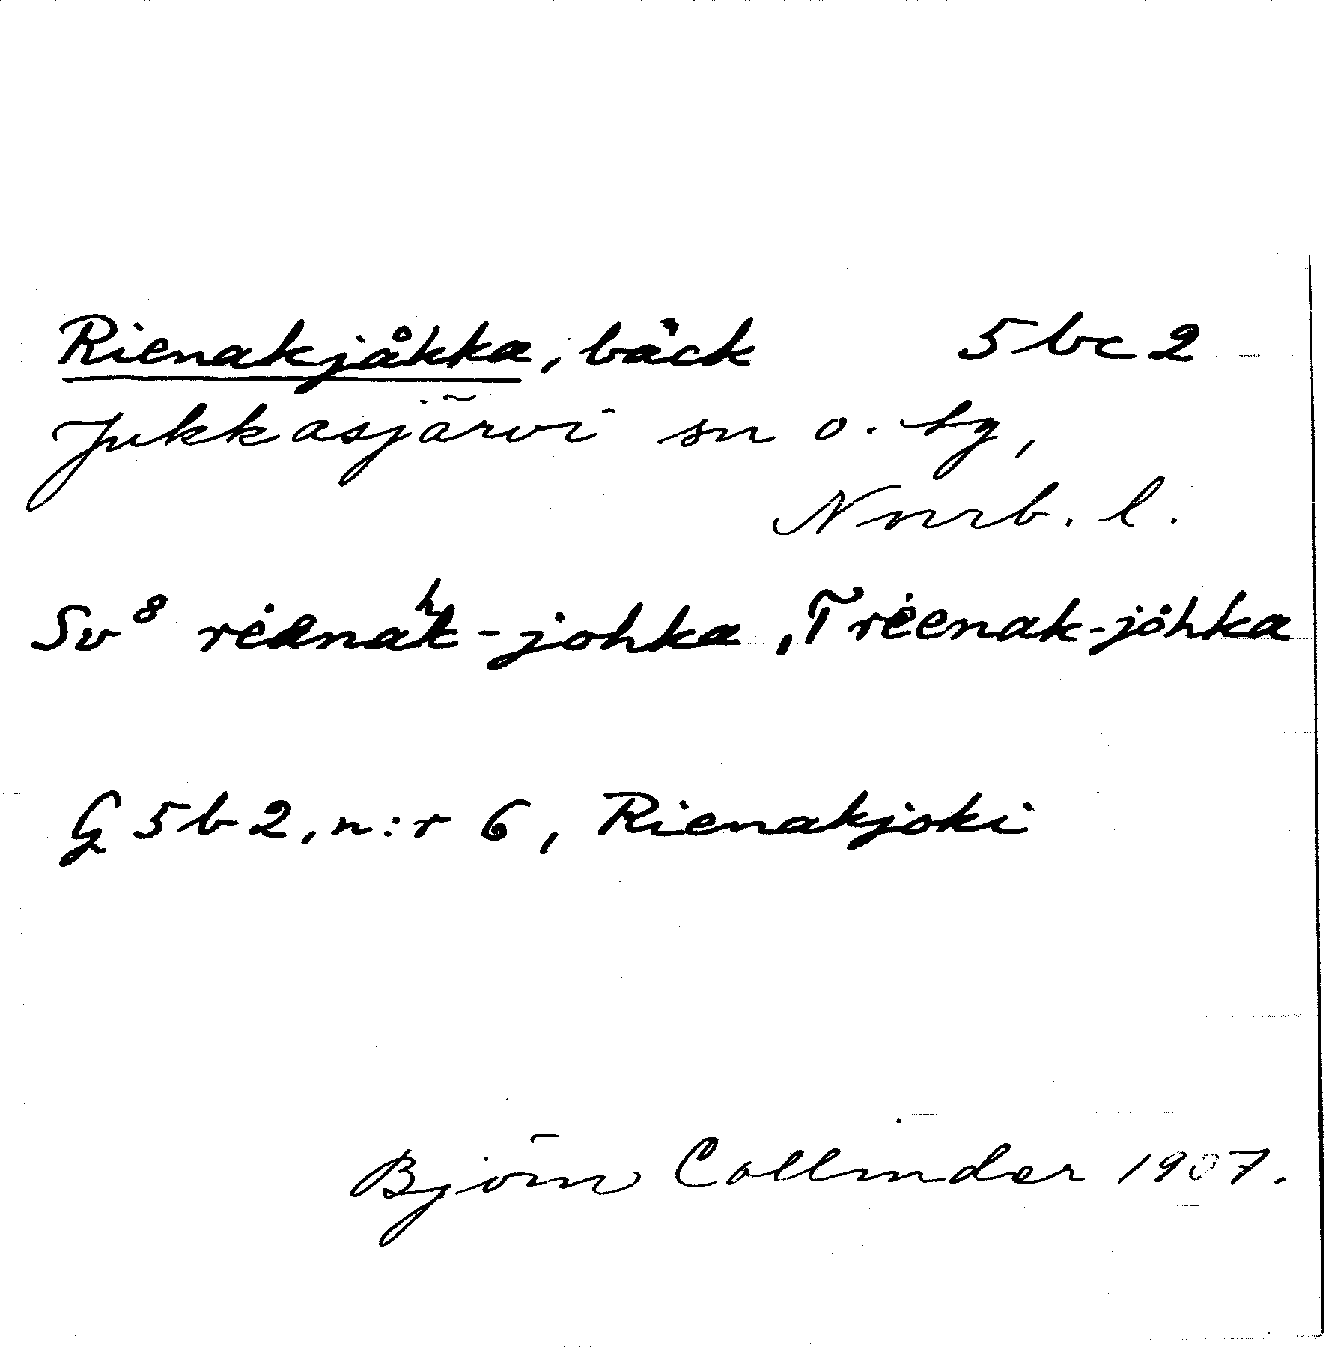 Rienakjåkka, bäck 5bc2
Jukkasjärvi sn o. tg,
Nnrb. l.
Sv⁸ rėenaʰk-johka, T rėenak-jȯhka
G 5b2, n:r 6, Rienakjoki
Björn Collinder 1907.